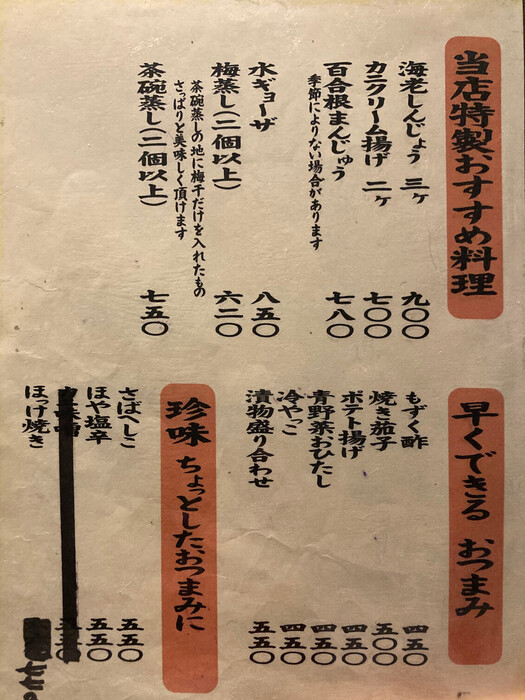 当店特製おすすめ料理
海老しんじょう 三ヶ 九〇〇
カニクリーム揚げ 二ヶ 七〇〇
百合根まんじゅう 七八〇
季節によりない場合があります
水ギョーザ 八五〇
梅蒸し(二個以上) 六二〇
茶碗蒸しの地に梅干だけを入れたもの
さっぱりと美味しく頂けます
茶碗蒸し(二個以上) 七五〇
早くできる おつまみ
もずく酢 四五〇
焼き茄子 五〇〇
ポテト揚げ 四五〇
青野菜おひたし 四五〇
冷やっこ 四五〇
漬物盛り合わせ 五五〇
珍味 ちょっとしたおつまみに
さばへしこ 五五〇
ほや塩辛 五五〇
ほっけ焼き 七七〇